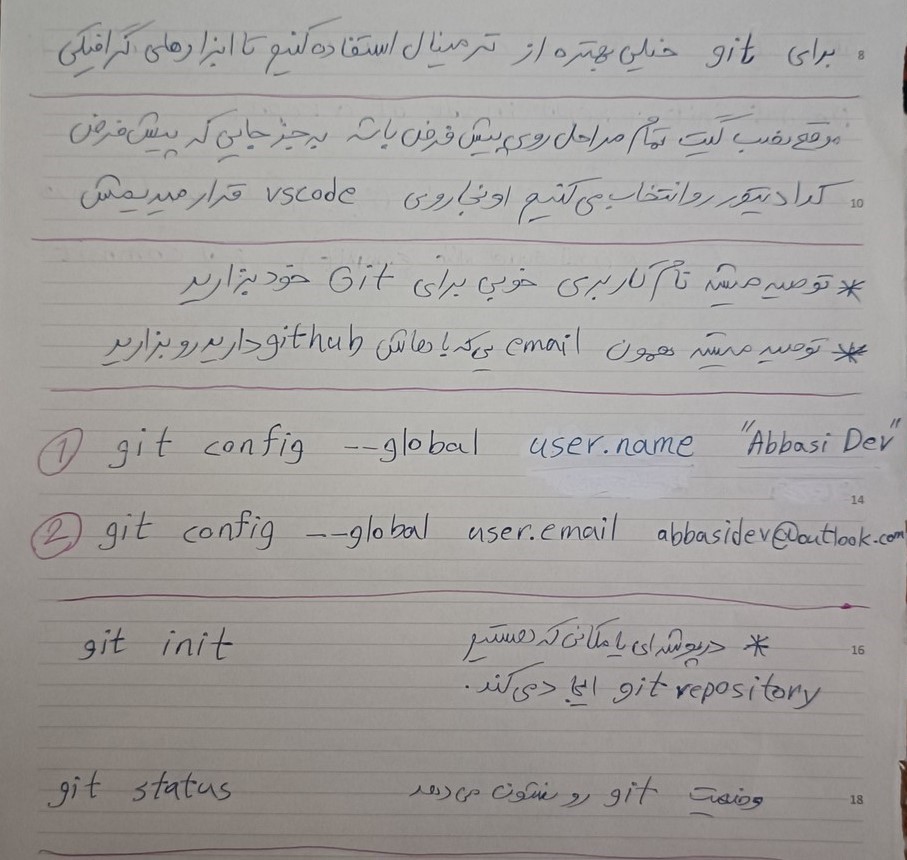 برای git خیلی بهتره از ترمینال استفاده کنیم تا ابزارهای گرافیکی
8
موقع نصب گیت تمام مراحل روی پیش فرض باشه به جز جایی که پیش فرض
کدام ادیتور رو انتخاب می کنیم اونجا روی vscode قرار میدیمش
10
* توصیه میشه نام کاربری خوبی برای Git خود بزارید
* توصیه میشه همون email ی که باهاش github دارید رو بزارید
① git config --global user.name "Abbasi Dev"
14
② git config --global user.email abbasidev@outlook.com
git init * در پوشه ای یا مکانی که هستیم
16
git repository ایجاد می کند.
git status وضعیت git رو نشون می دهد
18